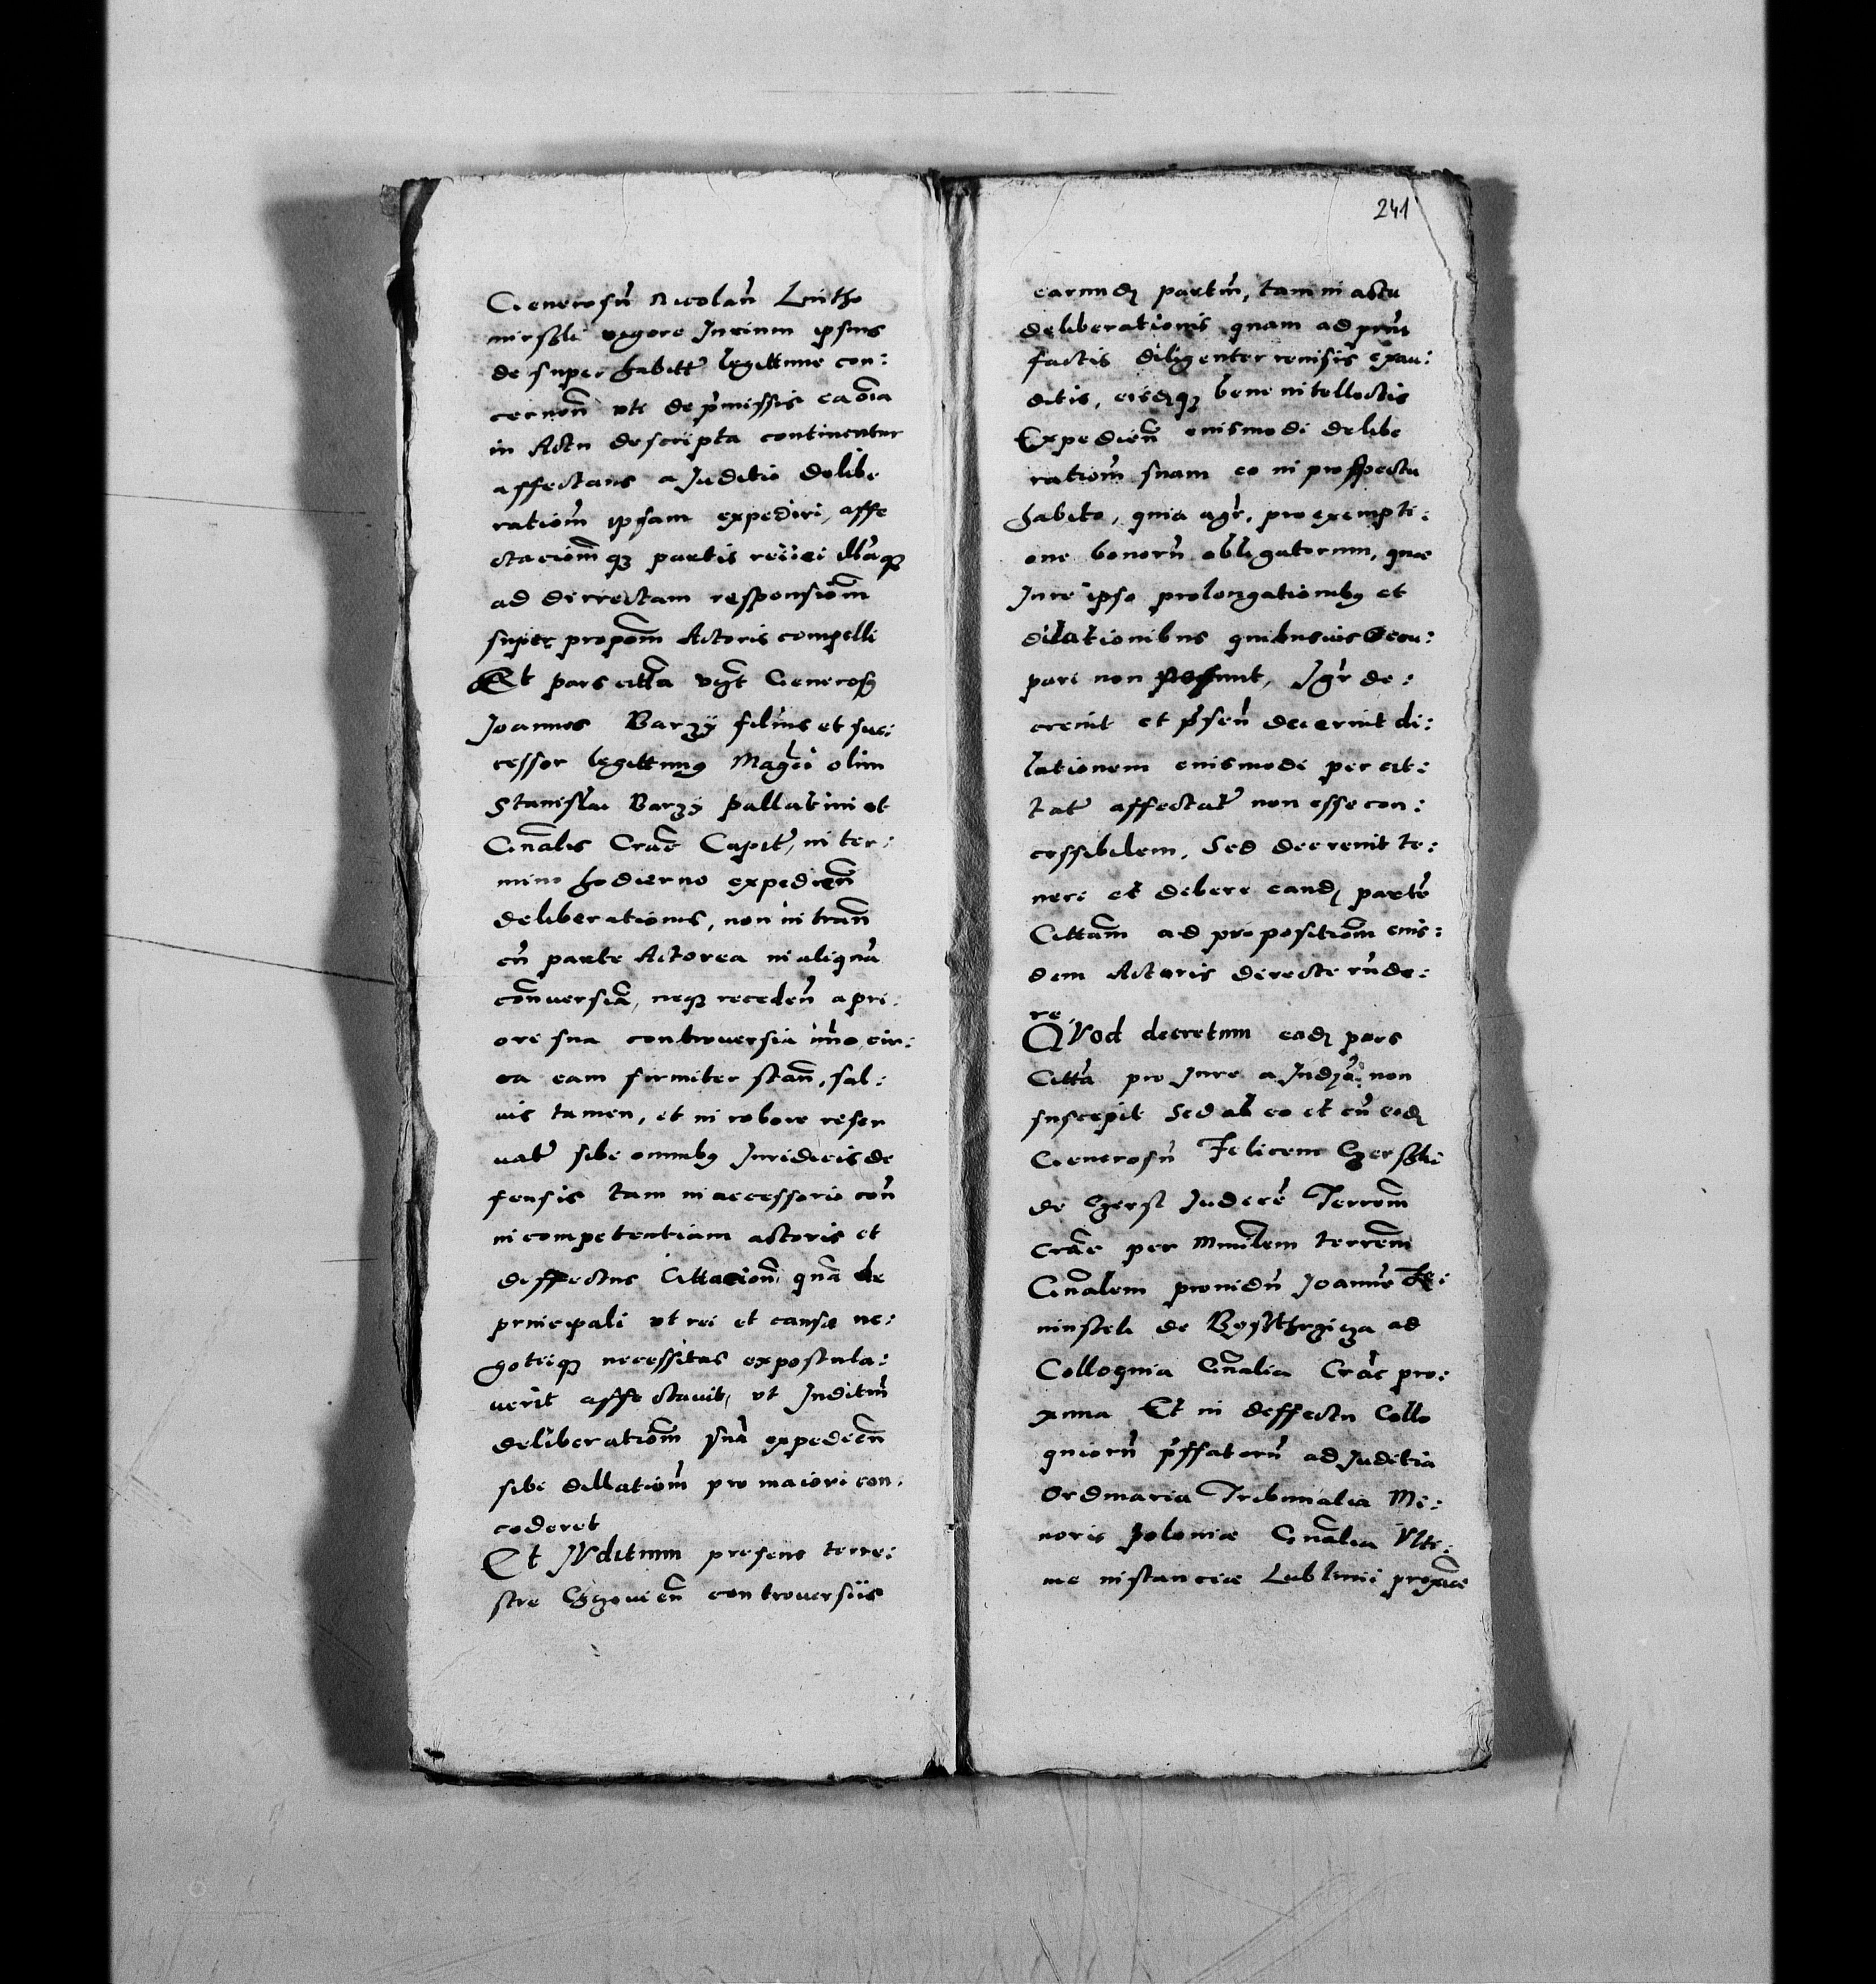 Generosũ Nicolaũ Lutho
mirski vigore Jurium ipsius
de super habitt legittime con:
cernen̄ uti de p̄missis ea oīa
in Actu descripta continentur
affectans a Juditio delibe
rationē ipsam expediri, affe
ctacionēqz partis reiici illāqz
ad dirrectam responsionē
super proponē Actoris compelli
Et pars citta vizt Generosq
Joannes Barzÿ filius et suc:
cessor legittimq Magci olim
Stanislai Barzÿ Pallatini et
Gn̄alis Crac̄ Capit, in ter:
mino hodierno expedien̄
deliberationis, non intran̄
cũ parte Actorea in aliquā
conuersiā, neqz receden̄ a pri:
ore sua controuersia im̄o cir:
ca eam firmiter stan̄, sal:
uis tamen, et in robore reser
uat sibi omnibq Juridicis de
fensis tam in accessorio con̄
incompetentiam actoris et
deffectus Cittacion̄ quā de
principali ut rei et causæ ne:
gotiiqz necessitas expostula:
uerit affectauit, ut Juditiũ
deliberationē suā expedien̄
sibi dillationē pro maiori con:
cederet
Et JVditium presens terre:
stre Czchouien̄ controuersiis
241
earundẽ partiũ, tam in actu
deliberationis quam ad prn̄s
factis diligenter reuisis exau:
ditis, eisdẽqz bene intellectis
Expedien̄ euismodi delibe
rationē suam eo in prospectu
habito, quia agr̄, pro exempti:
one bonorũ obligatorum, quæ
Jure ipso prolongationibq et
dilationibus quibusuis occu:
pari non possunt, Jgr̄ de:
creuit et p̄sen̄ decernit di:
lationem euismodi per cit:
tat affectat non esse con:
cessibilem, Sed decreuit te:
neri et debere eandẽ partē
Cittam ad propositionē eius:
dem Actoris directe rn̄de:
re
QVod decretum eadẽ pars
Citta pro Jure a Judẓii non
suscepit Sed ab eo et cũ eodẽ
Generosũ Felicem Czerski
de Czersk Judicē Terrem̄
Crac̄ per Minlem terrem̄
Gn̄alem prouidũ Joannē
de ad
Colloquia Gn̄alia Crac̄ pro:
xima Et in deffectu Collo
quiorũ p̄ffatorũ ad Juditia
Ordinaria Tribunalia Mi:
noris Poloniæ Gn̄alia Ulti:
mæ instanciæ Lublinii proxīe